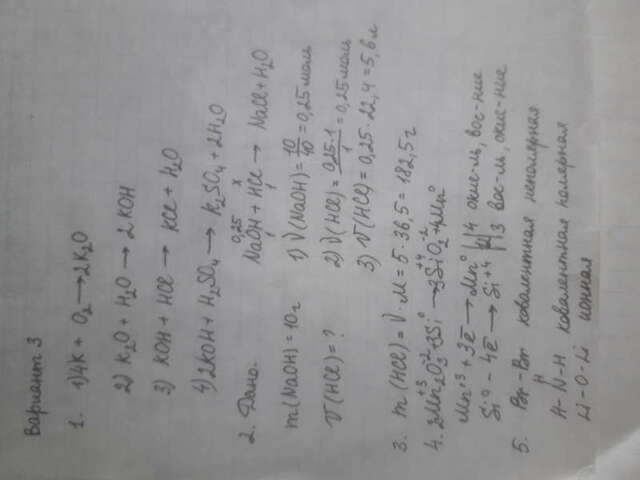 Вариант 3
1. 1) 4K + O₂ → 2K₂O
2) K₂O + H₂O → 2KOH
3) KOH + HCl → KCl + H₂O
4) 2KOH + H₂SO₄ → K₂SO₄ + 2H₂O
2. Дано:
0,25 x
NaOH + HCl → NaCl + H₂O
1 1
m(NaOH) = 10г
1) ν(NaOH) = 10/40 = 0,25 моль
V(HCl) = ?
2) ν(HCl) = 0,25·1/1 = 0,25 моль
3) V(HCl) = 0,25·22,4 = 5,6л
3. m(HCl) = ν·M = 5·36,5 = 182,5г
4. 2Mn₂⁺³O₃⁻² + 3Si⁰ → 3Si⁺⁴O₂⁻² + 4Mn⁰
Mn⁺³ + 3ē → Mn⁰ | 4 окис-ль, вос-ние
Si⁰ - 4ē → Si⁺⁴ | 3 вос-ль, окис-ние
5. Br - Br ковалентная неполярная
H
H - N - H ковалентная полярная
Li - O - Li ионная